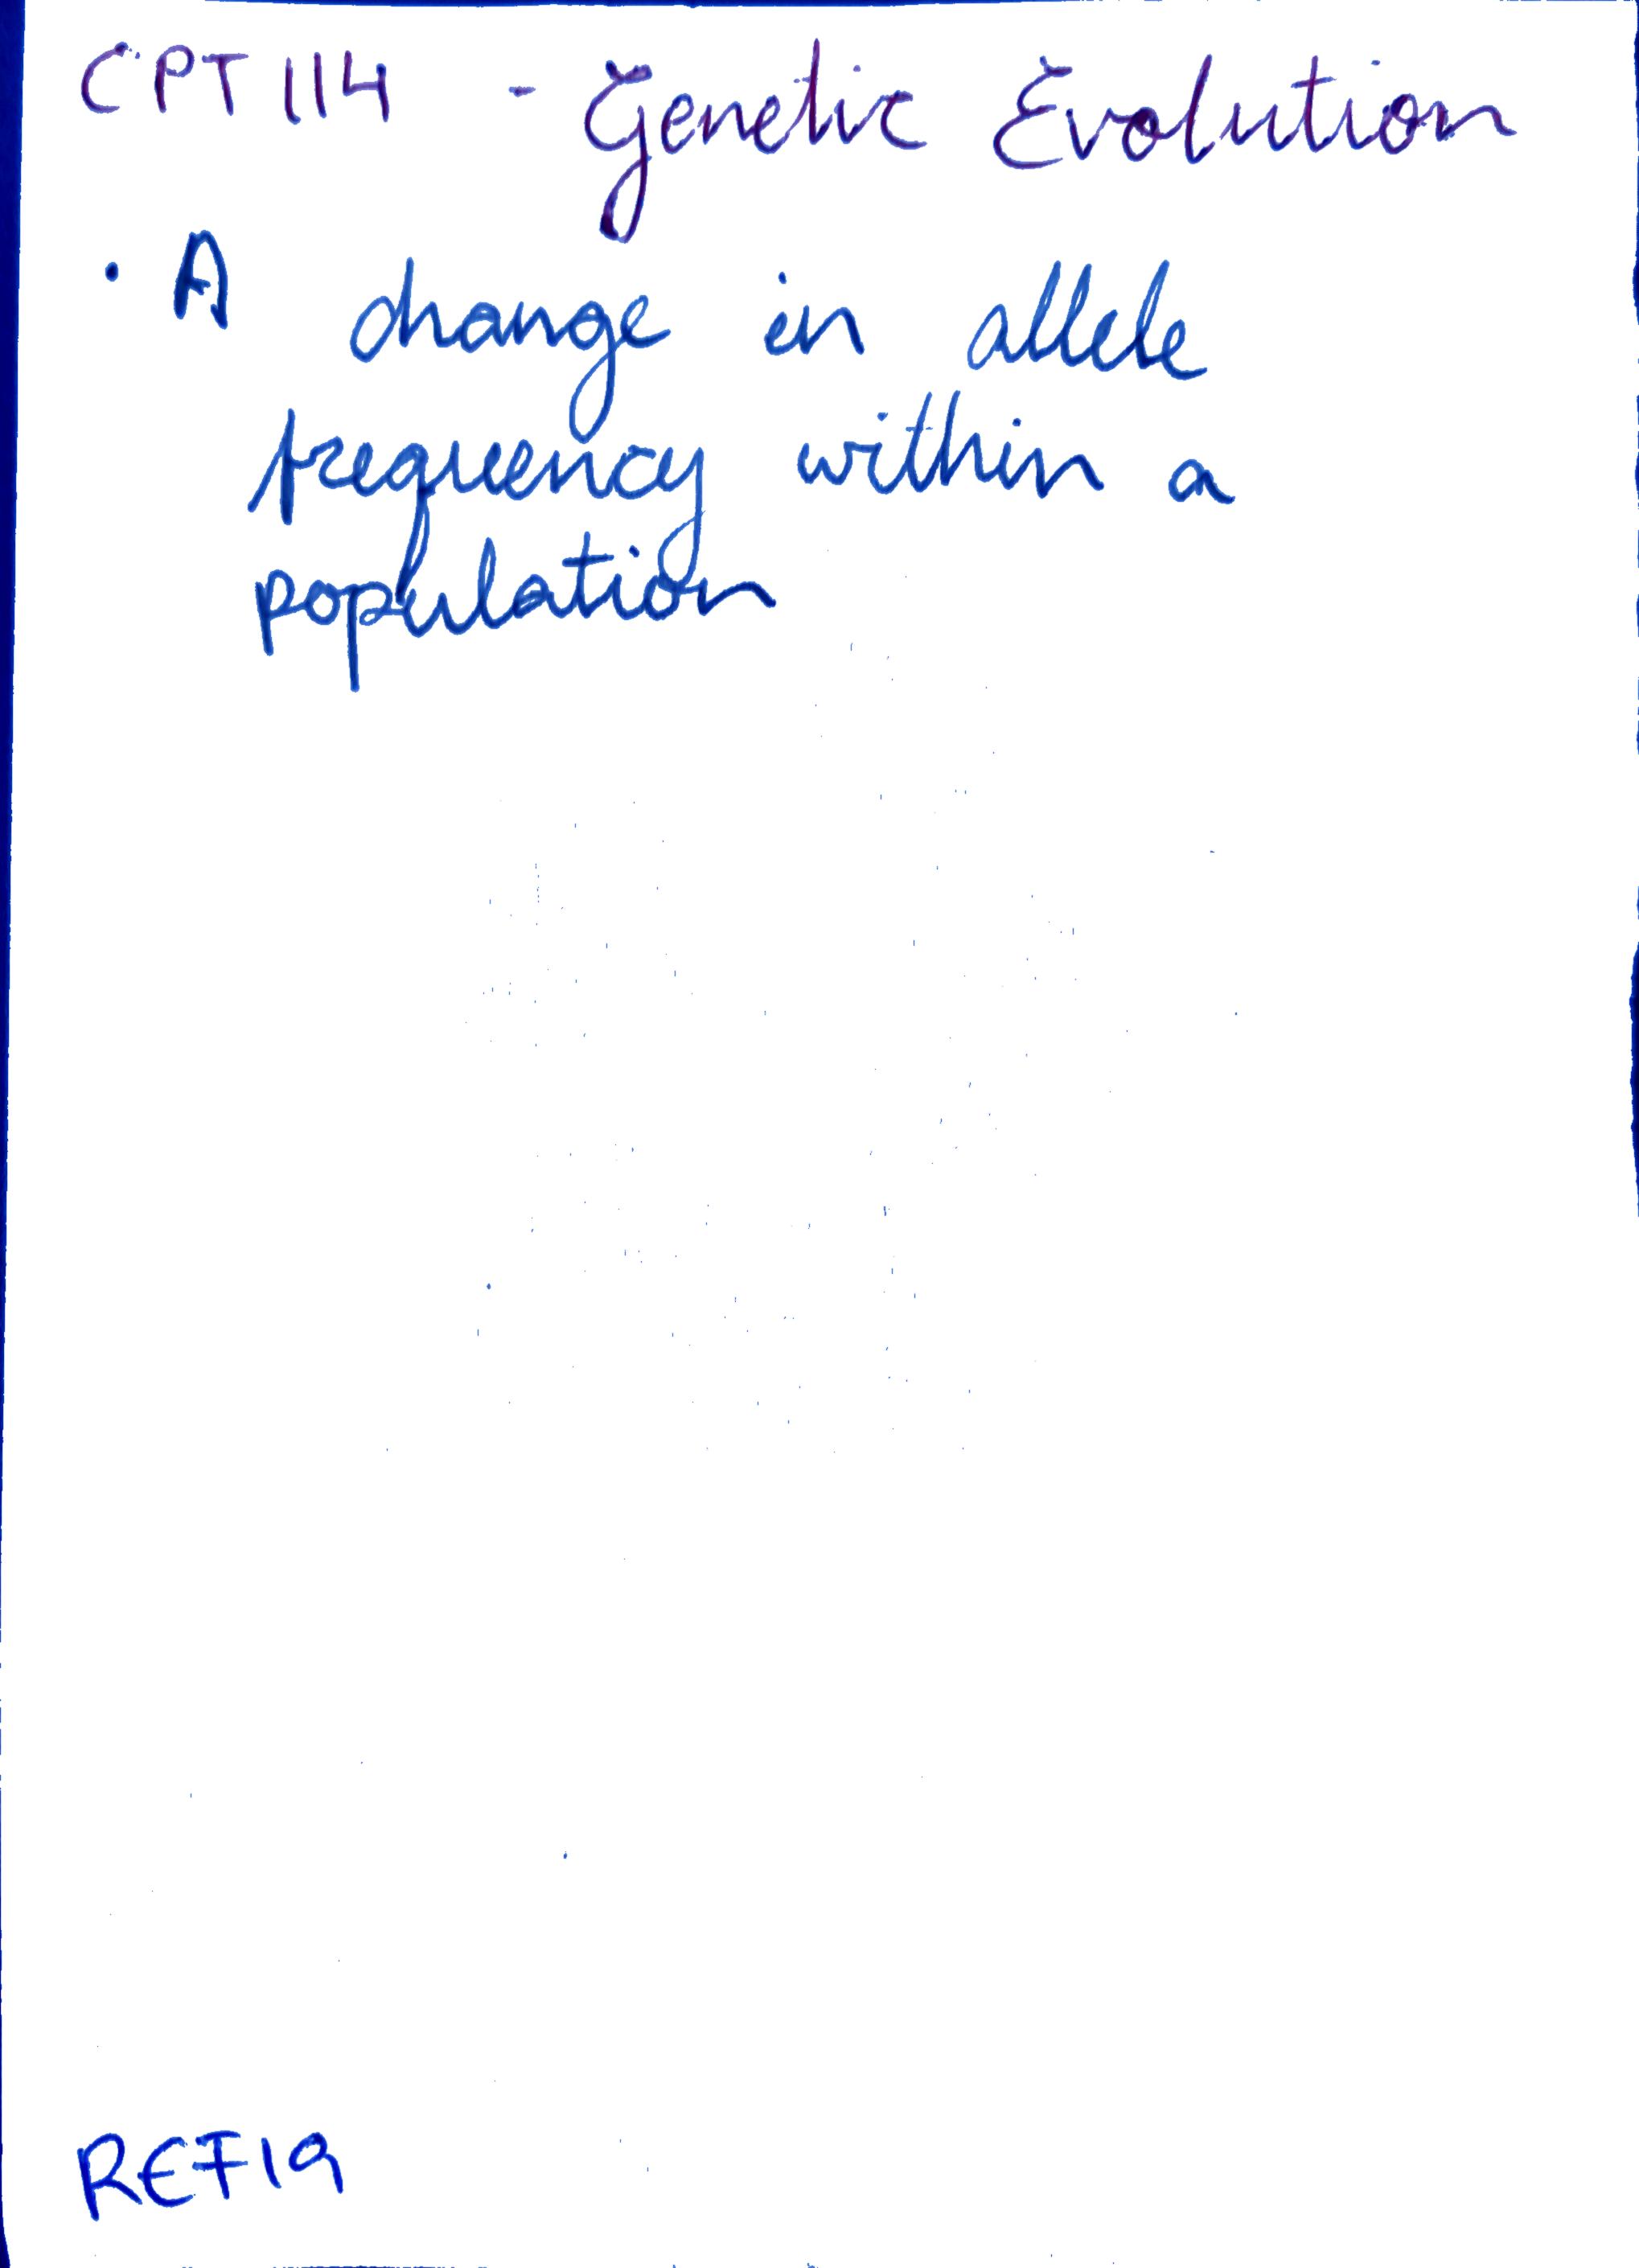 CPT 114 - Genetic Evolution
· A change in allele
frequency within a
population
REF19